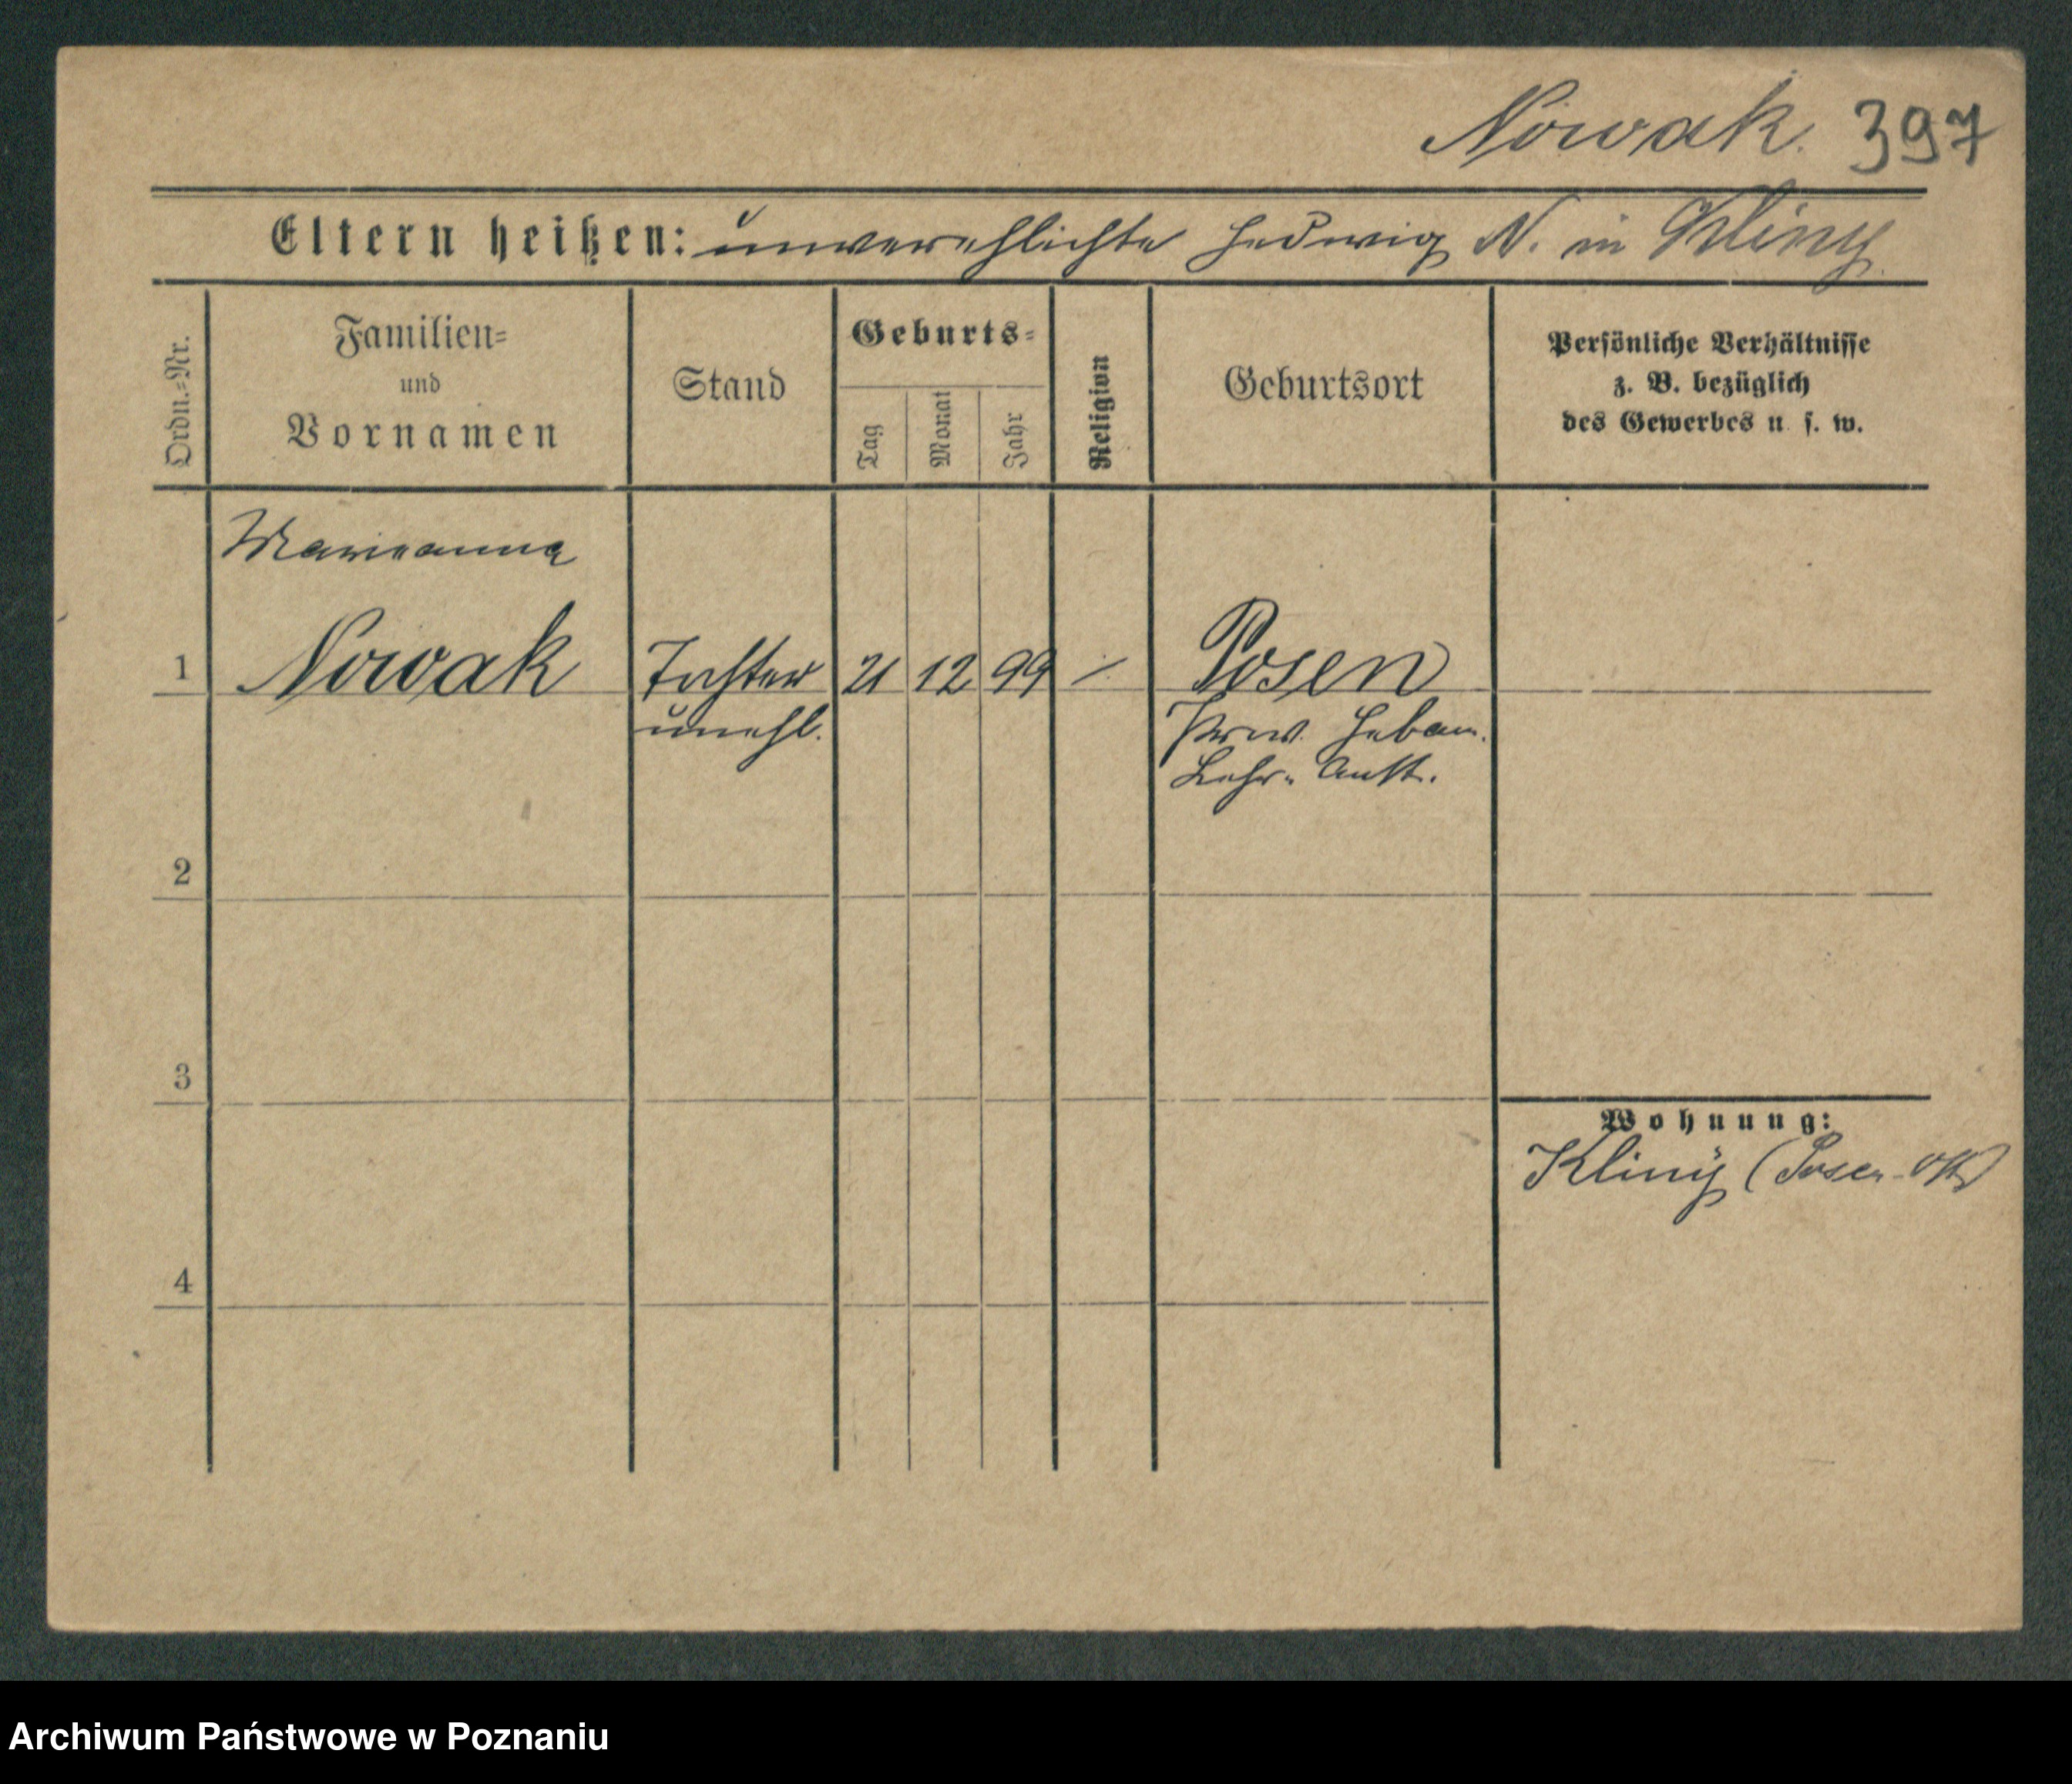 Nowak. 397
Eltern heißen: unverehlichte Hedwig N. in Kliny
Ordn.=Nr.
Familien=
und
Vornamen
Stand
Geburts=
Tag
Monat
Jahr
Religion
Geburtsort
Persönliche Verhältnisse
z. B. bezüglich
des Gewerbes u. s. w.
Marianna
1 Nowak Tochter 21 12 99 Posen
unehl. Prov. Hebam.
Lehr- Anst.
2
3
Wohnung:
Kliny (Posen Ost)
4
Archiwum Państwowe w Poznaniu